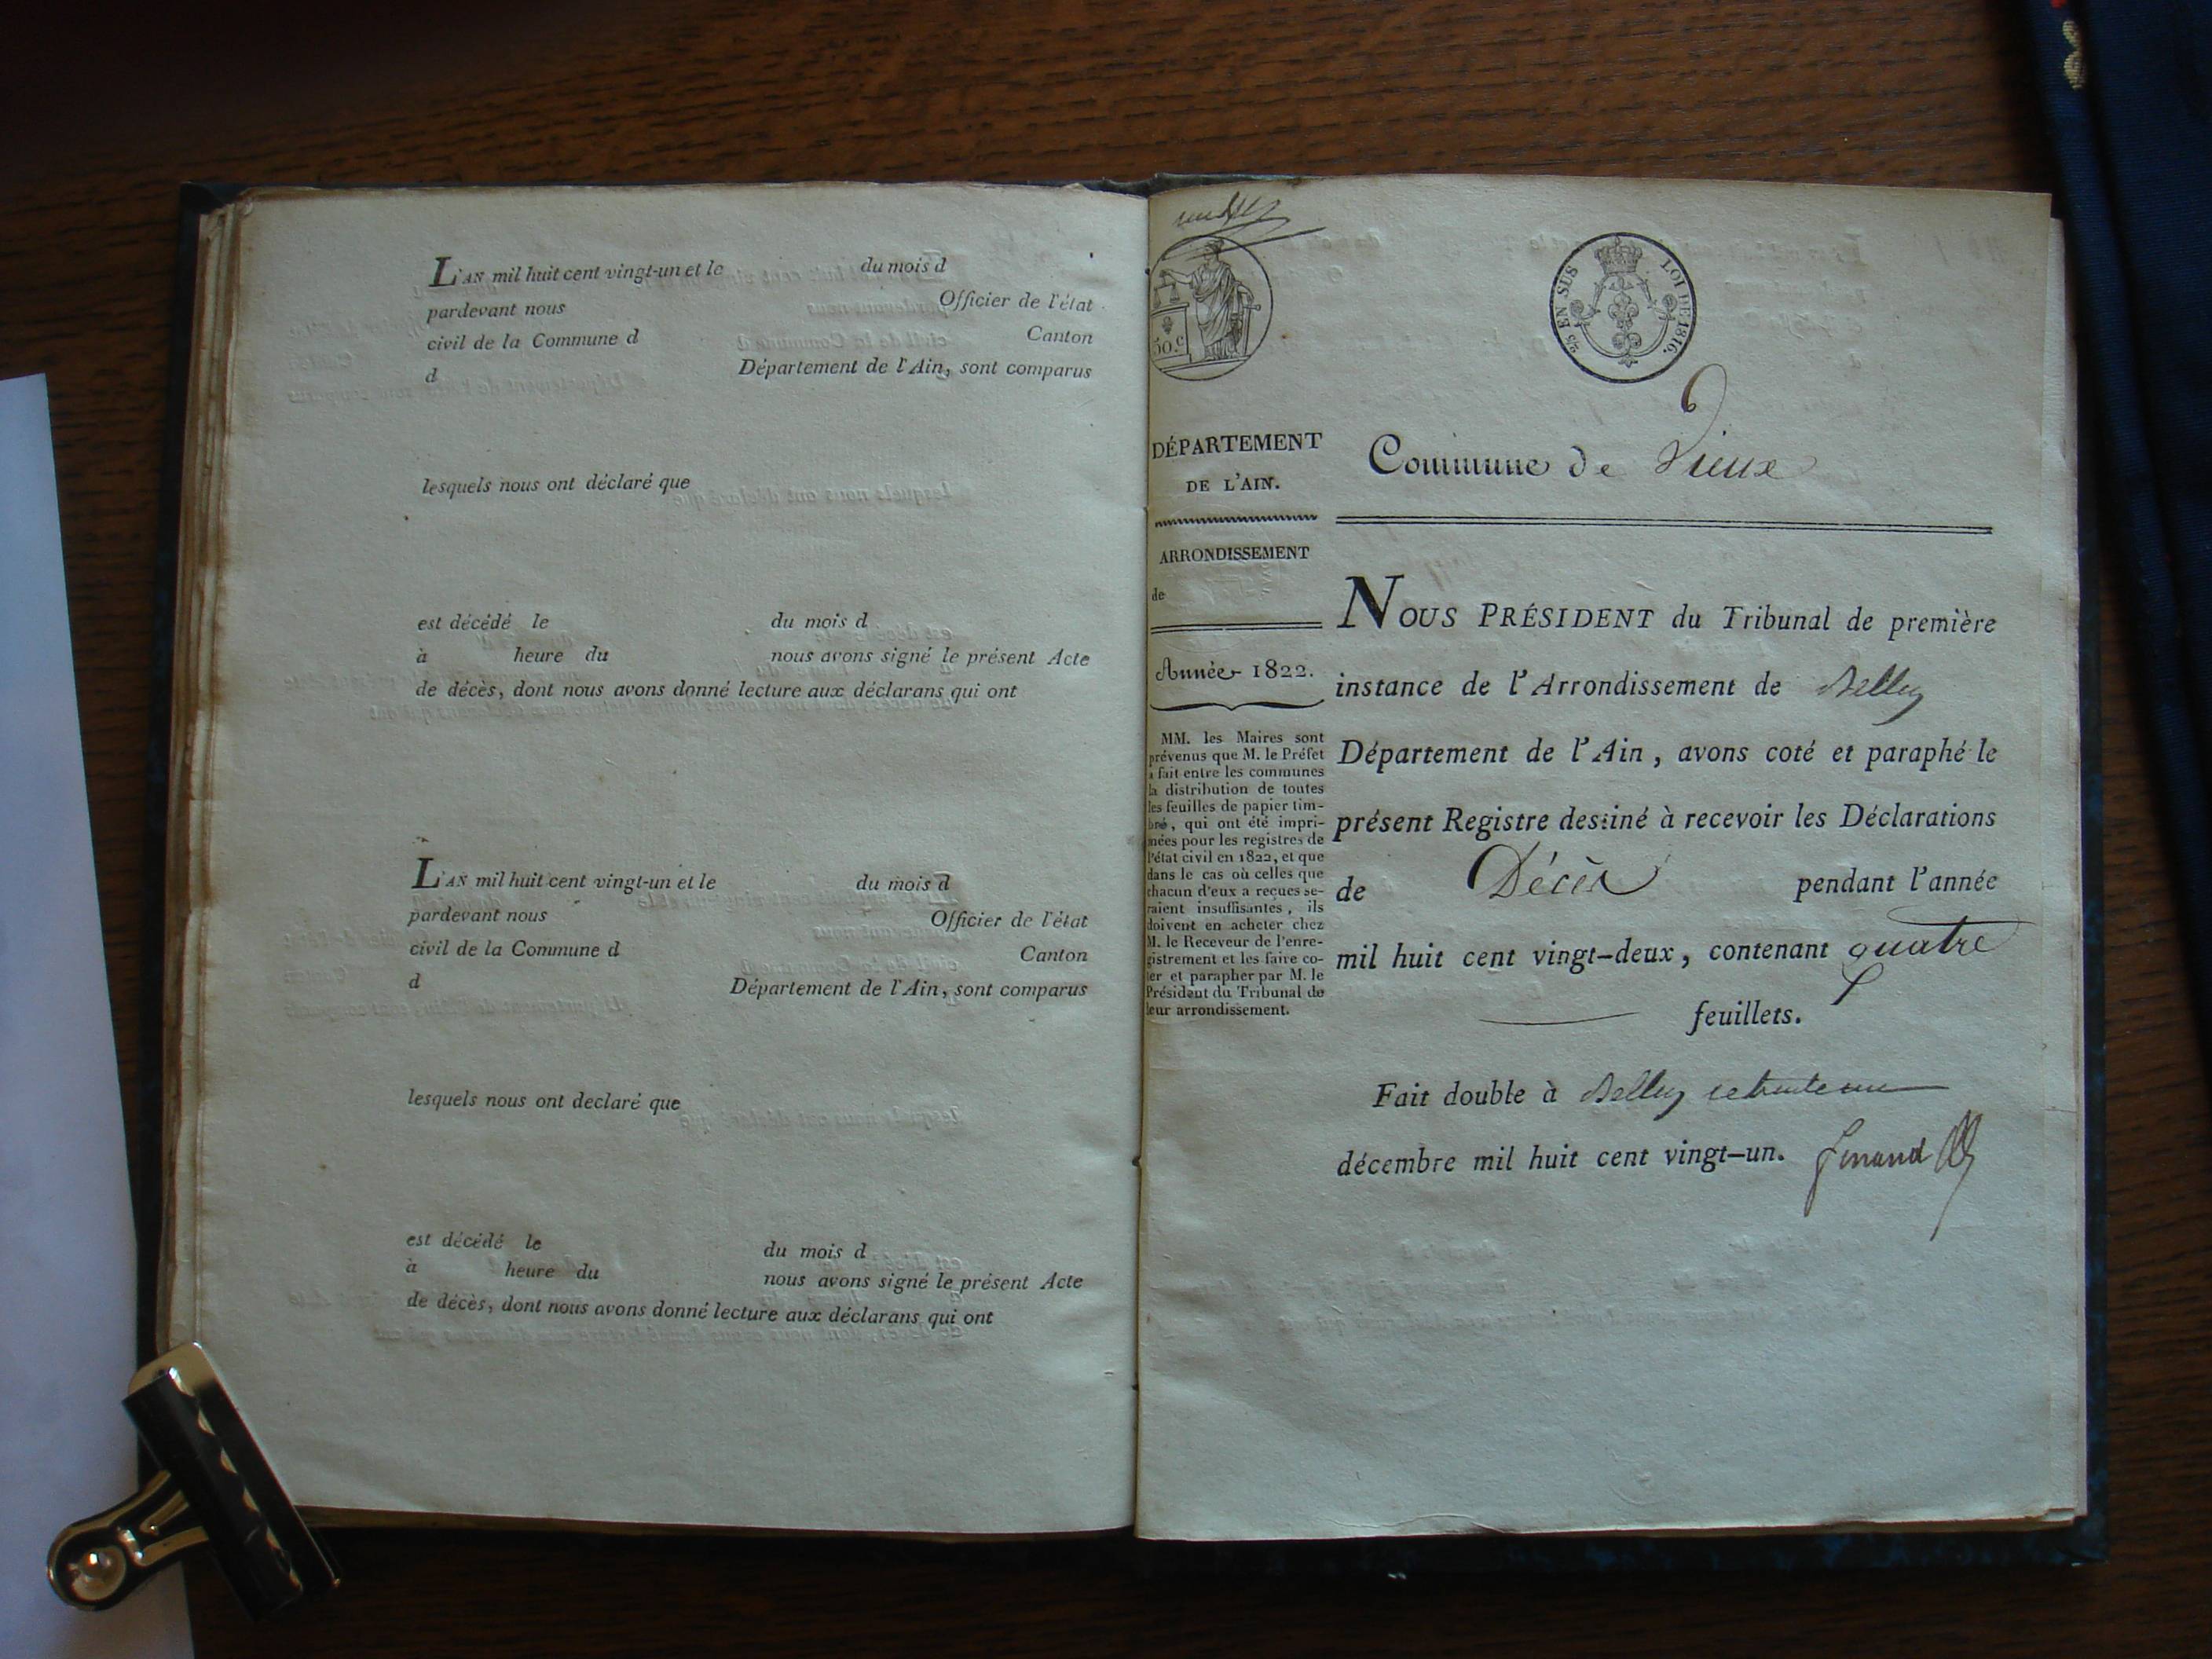 L'AN mil huit cent vingt-un et le du mois d
pardevant nous Officier de l'état
civil de la Commune d Canton
d Département de l'Ain, sont comparus
lesquels nous ont déclaré que
est décédé le du mois d
à heure du nous avons signé le présent Acte
de décès, dont nous avons donné lecture aux déclarans qui ont
L'AN mil huit cent vingt-un et le du mois d
pardevant nous Officier de l'état
civil de la Commune d Canton
d Département de l'Ain, sont comparus
lesquels nous ont declaré que
est décédé le du mois d
à heure du nous avons signé le présent Acte
de décès, dont nous avons donné lecture aux déclarans qui ont
50.c
25 EN SUS LOI DE 1816.
DÉPARTEMENT
DE L'AIN.
ARRONDISSEMENT
de
Année 1822.
MM. les Maires sont
prévenus que M. le Préfet
a fait entre les communes
la distribution de toutes
les feuilles de papier tim-
bré, qui ont été impri-
mées pour les registres de
l'état civil en 1822, et que
dans le cas où celles que
chacun d'eux a reçues se-
raient insuffisantes, ils
doivent en acheter chez
M. le Receveur de l'enre-
gistrement et les faire co-
ter et parapher par M. le
Président du Tribunal de
leur arrondissement.
Commune de Vieux
NOUS PRÉSIDENT du Tribunal de première
instance de l'Arrondissement de Belley
Département de l'Ain, avons coté et paraphé le
présent Registre destiné à recevoir les Déclarations
de Décès pendant l'année
mil huit cent vingt-deux, contenant quatre
feuillets.
Fait double à Belley ce trente un
décembre mil huit cent vingt-un.